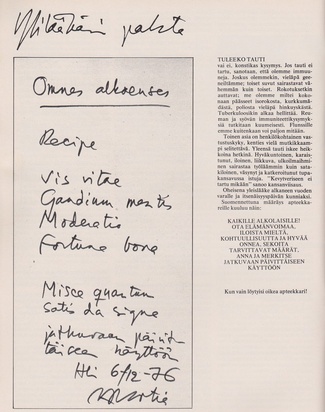 Omnes alkoenses
Recipe
Vis vitae
Gaudium mentis
Moderatio
Fortuna bona
Misce quantum
satis da signa
jatkuvaan päivit-
täiseen käyttöön
Hki 6/12-76
TULEEKO TAUTI
vai ei, konstikas kysymys. Jos tauti ei
tartu, sanotaan, että olemme immuu-
neja. Joskus olemmekin, vieläpä pe-
rineltämme; toiset suvut sairastavat vä-
hemmän kuin toiset. Rokotuksetkin
auttavat; me olemme miltei koko-
naan päässeet isorokosta, kurkkumä-
dästä, poliosta vieläpä hinkuyskästä.
Tuberkuloosikin alkaa hellittää. Reu-
man ja syövän immuniteettikysymyk-
siä tutkitaan kuumeisesti. Flunssille
emme kuitenkaan voi paljon mitään.
Toinen asia on henkilökohtainen vas-
tustuskyky, kenties vielä mutkikkaam-
pi selitettävä. Yleensä tauti iskee heik-
koina hetkinä. Hyväkuntoinen, karais-
tunut, iloinen, liikkuva, ulkoilmaihmi-
nen sairastaa työläämmin kuin sata-
kiloinen, väsynyt ja katkeroitunut tupa-
kansavussa istuja. "Kevytveriseen ei
tartu mikään" sanoo kansanviisaus.
Oheisena ylilääkäri alkaneen vuoden
varalle ja itsenäisyyspäivän kunniaksi.
Suomennettuna määräys apteekka-
reille kuuluu näin:
KAIKILLE ALKOLAISILLE!
OTA ELÄMÄNVOIMAA,
ILOISTA MIELTÄ,
KOHTUULLISUUTTA JA HYVÄÄ
ONNEA, SEKOITA
TARVITTAVAT MÄÄRÄT,
ANNA JA MERKITSE
JATKUVAAN PÄIVITTÄISEEN
KÄYTTÖÖN
Kun vain löytyisi oikea apteekkari!